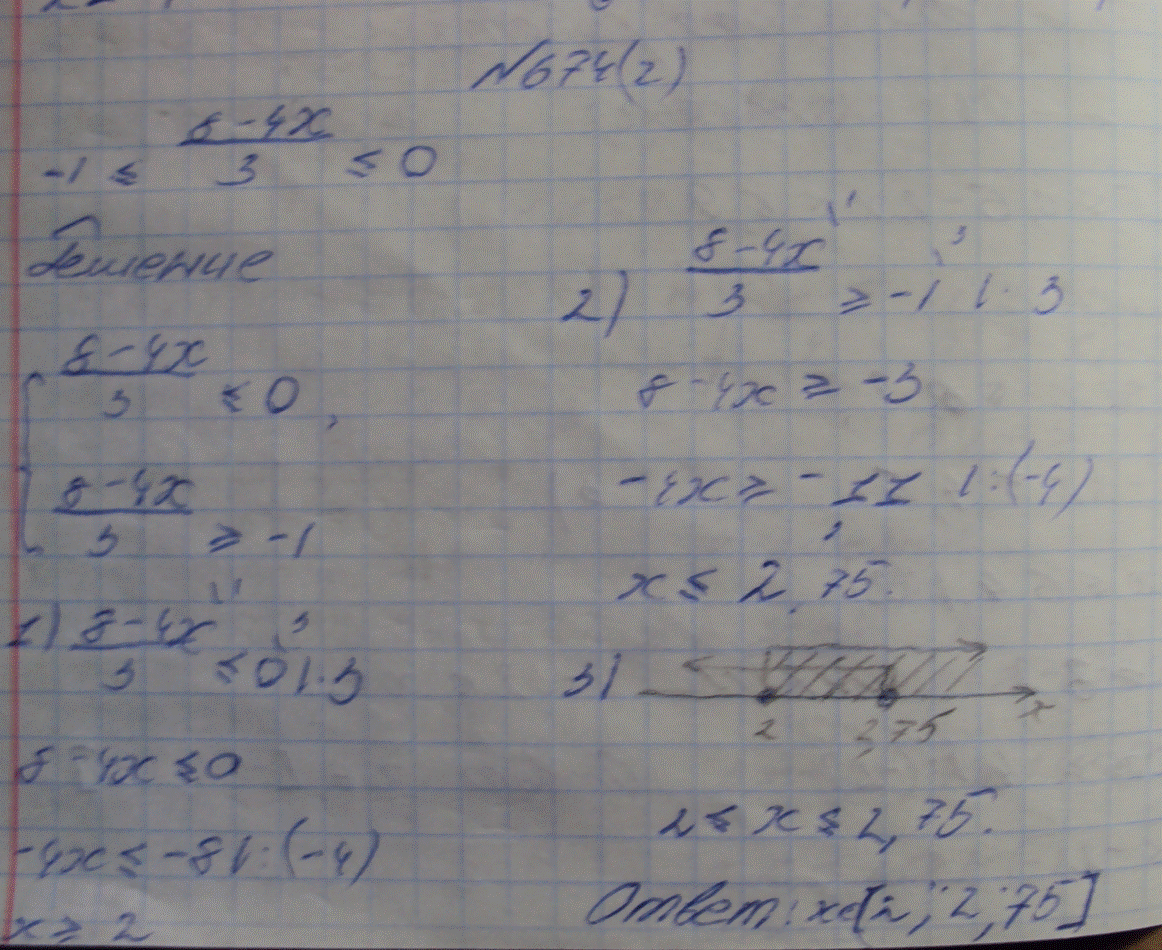 №674(2)
-1 ≤ (8-4x)/3 ≤ 0
Решение
{ (8-4x)/3 ≤ 0,
(8-4x)/3 ≥ -1
1) (8-4x)/3 ≤ 0 |·3
8-4x ≤ 0
-4x ≤ -8 |:(-4)
x ≥ 2
2) (8-4x)/3 ≥ -1 |·3
8-4x ≥ -3
-4x ≥ -11 |:(-4)
x ≤ 2,75.
3)
2 2,75 x
2 ≤ x ≤ 2,75.
Ответ: x∈[2; 2,75]